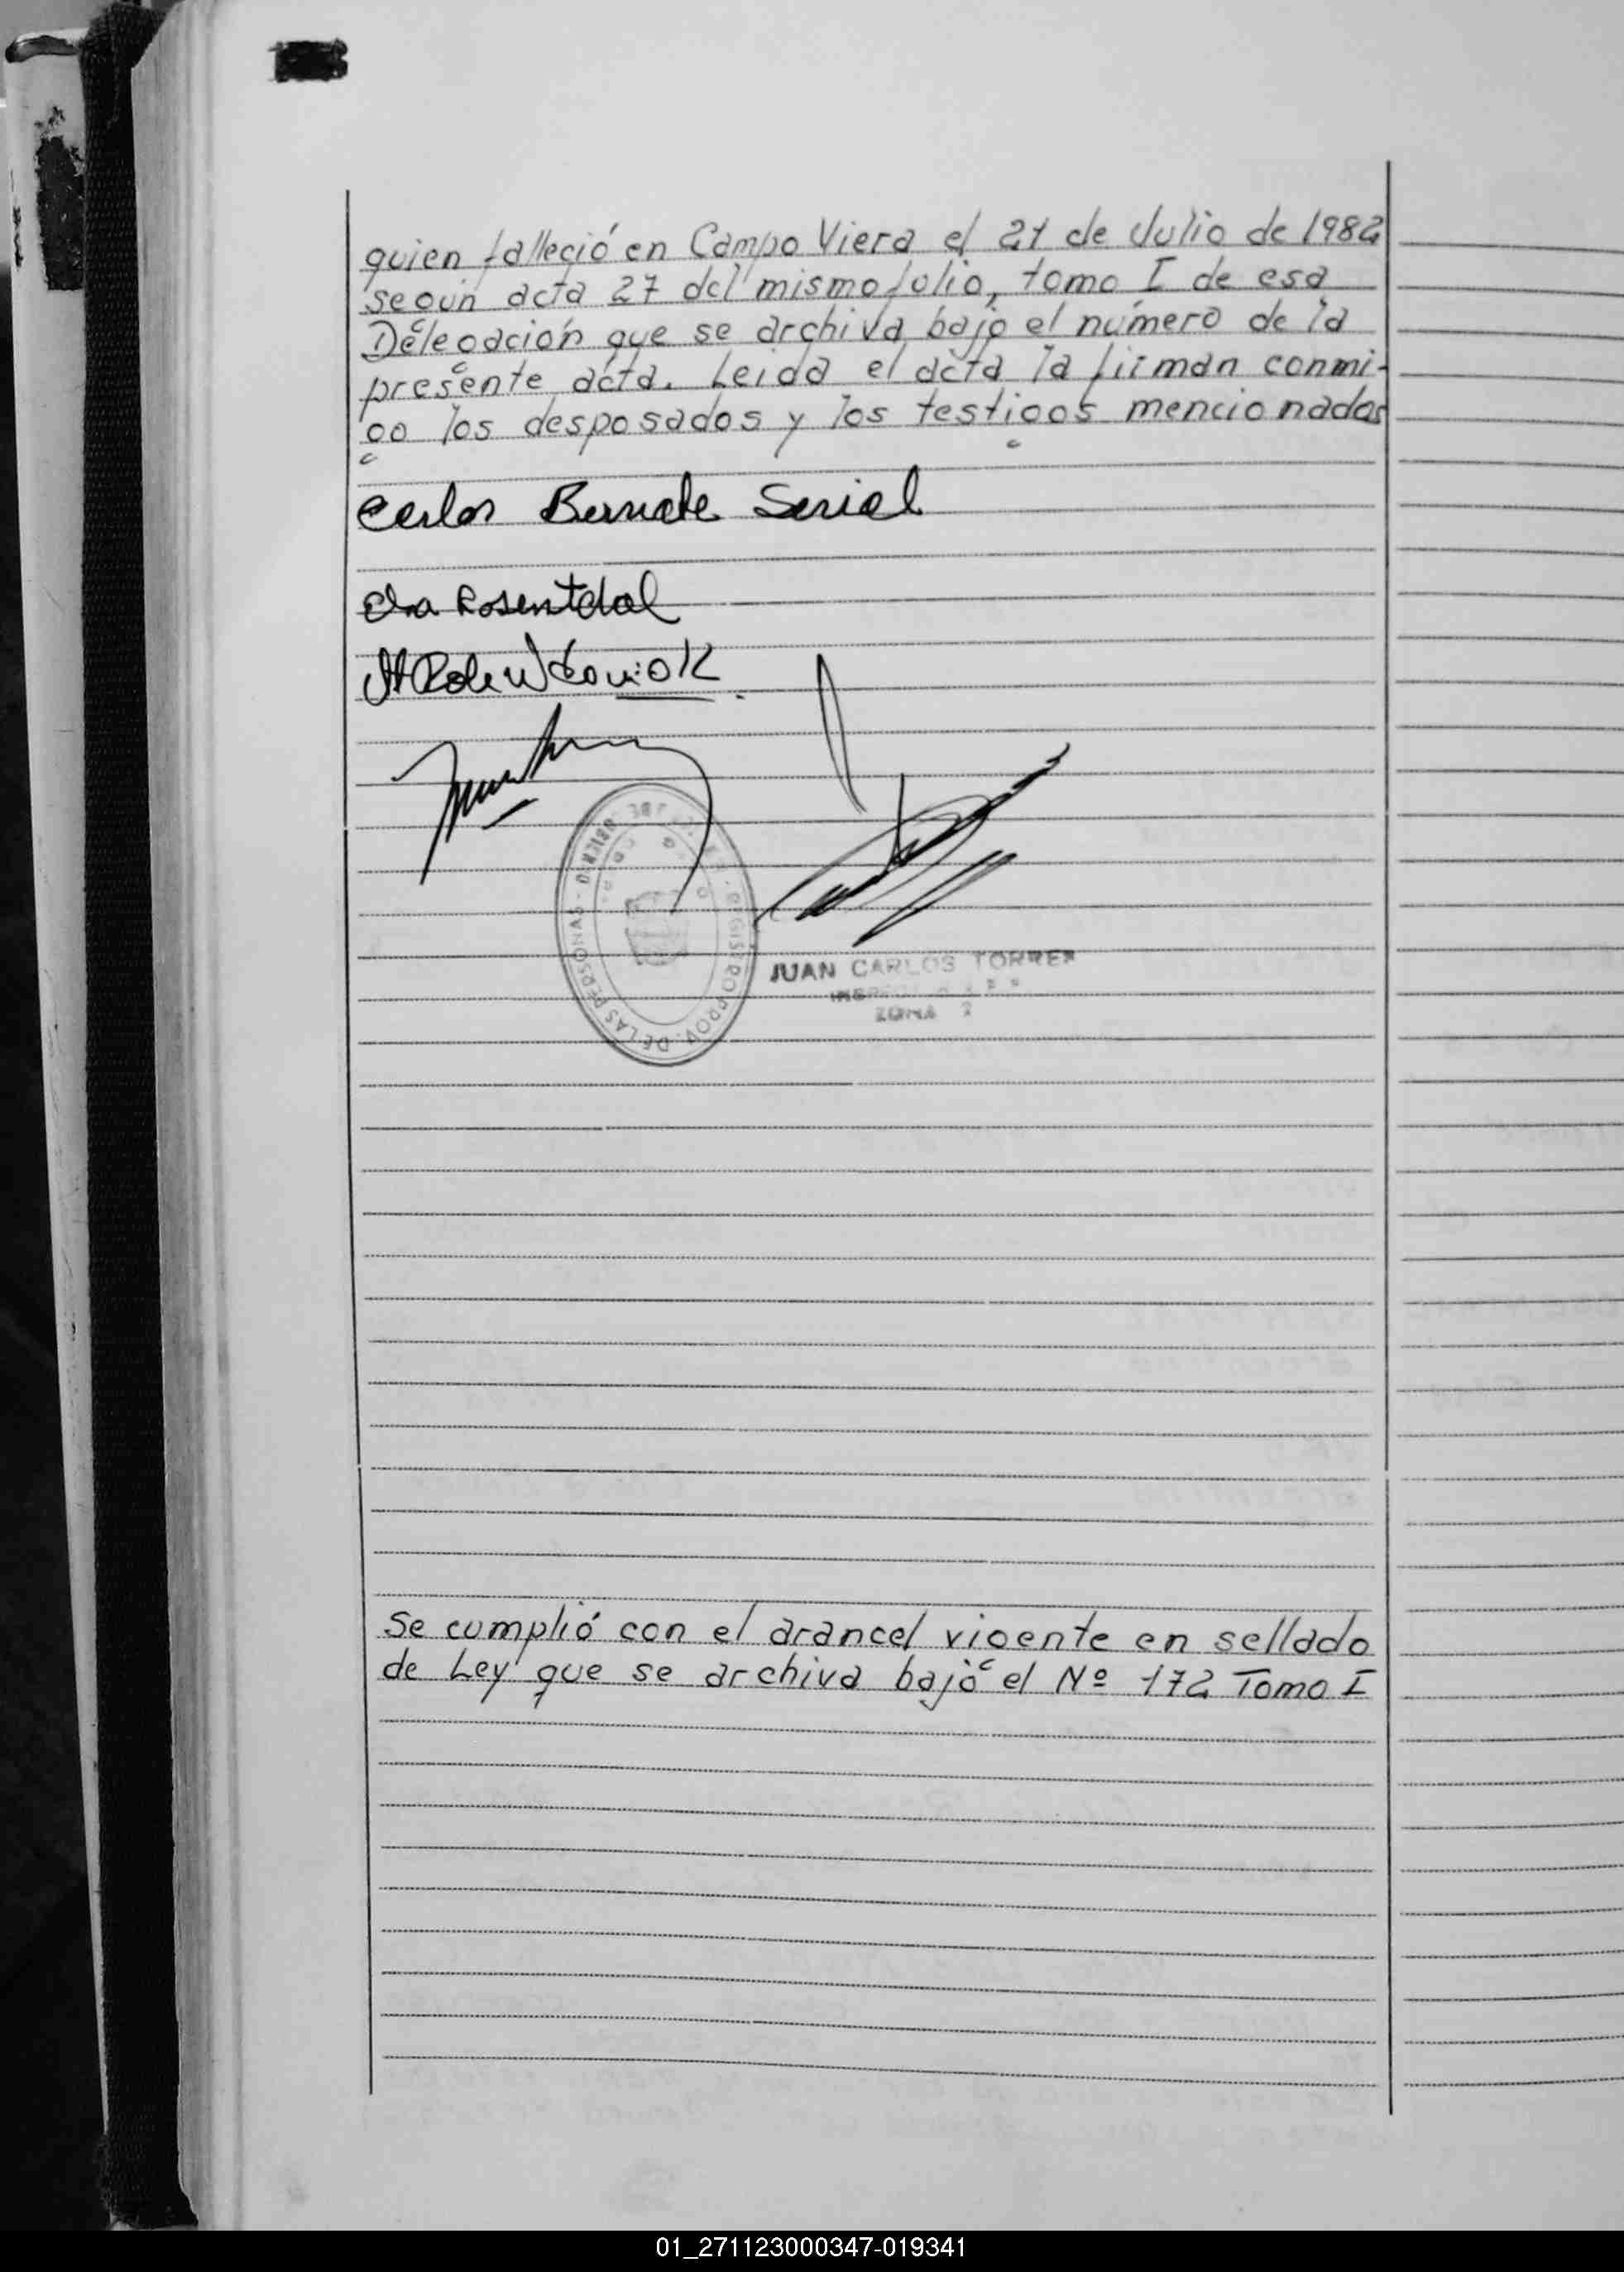 quien falleció en Campo Viera el 21 de Julio de 1982
según acta 27 del mismo folio, tomo I de esa
Delegación que se archiva bajo el número de la
presente acta. Leida el acta la firman conmi-
go los desposados y los testigos mencionados
Carlos Bernate Serial
Rosentdal
JUAN CARLOS TORRES
ZONA 2
REGISTRO PROV. DE LAS PERSONAS
Se cumplió con el arancel vigente en sellado
de Ley que se archiva bajo el Nº 172 Tomo I
01_271123000347-019341